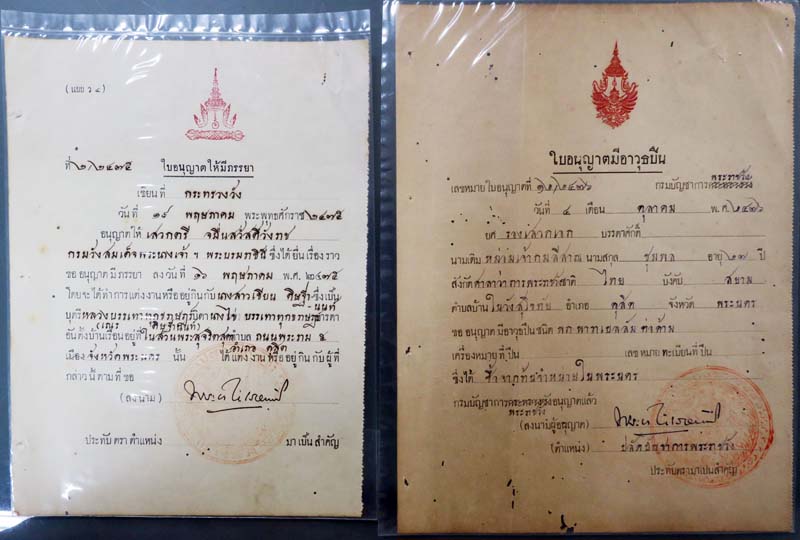 (แบบ ว ๔)
ที่ ๒/๒๔๗๕ ใบอนุญาตให้มีภรรยา
เขียนที่ กระทรวงวัง
วันที่ ๑๙ พฤษภาคม พระพุทธศักราช ๒๔๗๕
อนุญาตให้ เสวกตรี จมื่นสวัสดิ์วังราช
กรมวังสมเด็จพระนางเจ้าฯ พระบรมราชินี ซึ่งได้ยื่นเรื่องราว
ขออนุญาตมีภรรยา ลงวันที่ ๑๖ พฤษภาคม พ.ศ. ๒๔๗๕
โดยจะได้ทำการแต่งงานหรืออยู่กินกับ นางสาวเธียร ซึ่งเป็น
บุตรี หลวงบรรเทา บิดา มารดา
อันตั้งบ้านเรือนอยู่ที่ ในสวนพระสุจริตสุดา ตำบล ถนนพระราม ๕
อำเภอ ดุสิต
เมือง จังหวัดพระนคร นั้น ได้แต่งงานหรืออยู่กินกับผู้ที่
กล่าวนี้ตามที่ขอ
(ลงนาม)
ประทับตราตำแหน่ง มาเป็นสำคัญ
ใบอนุญาตมีอาวุธปืน
พระราชวัง
เลขหมายใบอนุญาตที่ ๑๒/๒๔๗๖ กรมบัญชาการ
วันที่ ๔ เดือน ตุลาคม พ.ศ. ๒๔๗๖
ยศ รองเสวกเอก บรรดาศักดิ์
นามเดิม หม่อมเจ้า นามสกุล ชุมพล อายุ ๒๗ ปี
สังกัด ศาลาว่าการพระราชวัง ชาติ ไทย บังคับ สยาม
ตำบลบ้าน ในวังสุโขทัย อำเภอ ดุสิต จังหวัด พระนคร
ขออนุญาตมีอาวุธปืนชนิด พก
เครื่องหมายที่ปืน เลขหมายทะเบียนที่ปืน
ซึ่งได้ ซื้อจาก จำหน่ายในพระนคร
กรมบัญชาการ อนุญาตแล้ว
พระราชวัง
(ลงนามผู้อนุญาต)
(ตำแหน่ง) ปลัดบัญชาการพระราชวัง
ประทับตรามาเป็นสำคัญ